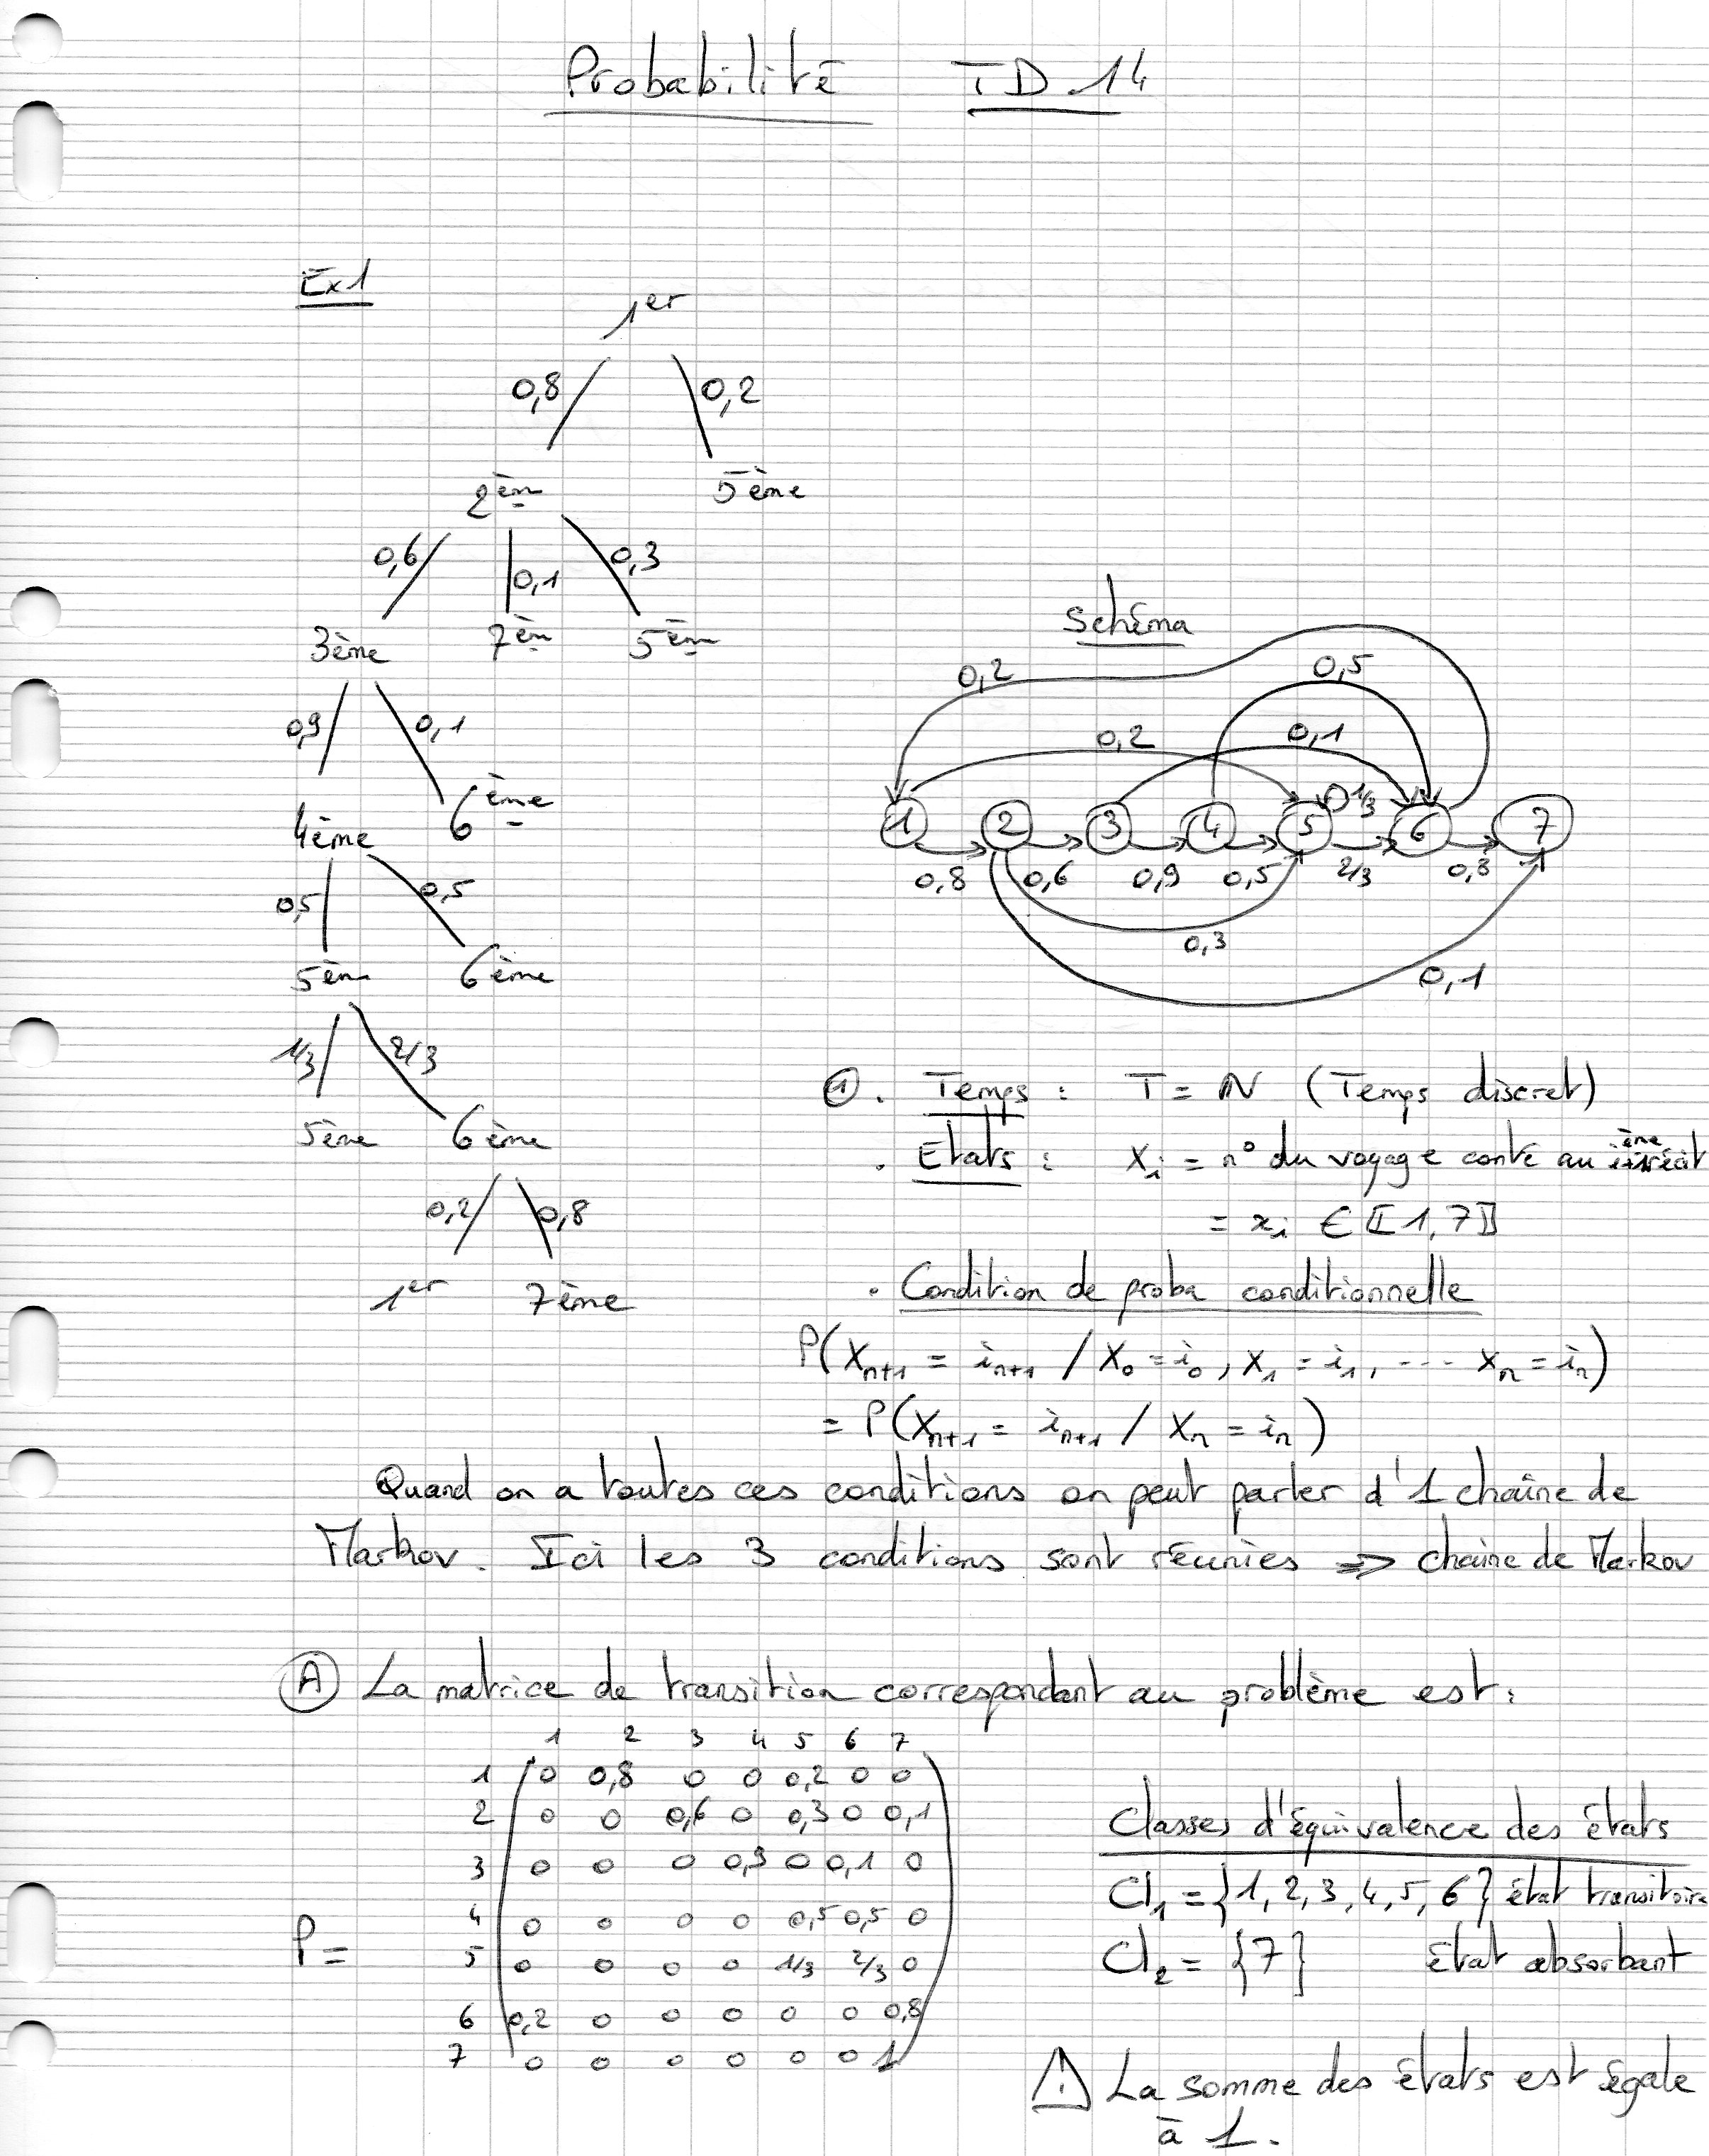 Probabilité TD 14
Ex1
1er
0,8 0,2
2èm 5ème
0,6 0,1 0,3
3ème 7èm 5èm
0,9 0,1
4ème 6ème
0,5 0,5
5èm 6ème
1/3 2/3
5ème 6ème
0,2 0,8
1er 7ème
Schéma
0,2 0,5
0,2 0,1
1/3
1 2 3 4 5 6 7
0,8 0,6 0,9 0,5 2/3 0,8
0,3
0,1
① . Temps : T = ℕ (Temps discret)
. Etats : Xi = n° du voyage conté au ième récit
= xi ∈ ⟦1,7⟧
. Condition de proba conditionnelle
P(Xn+1 = in+1 / X0 = i0, X1 = i1, --- Xn = in)
= P(Xn+1 = in+1 / Xn = in)
Quand on a toutes ces conditions on peut parler d'1 chaîne de
Markov. Ici les 3 conditions sont réunies => chaîne de Markov
Ⓐ La matrice de transition correspondant au problème est :
1 2 3 4 5 6 7
1 0 0,8 0 0 0,2 0 0
2 0 0 0,6 0 0,3 0 0,1
3 0 0 0 0,9 0 0,1 0
4 0 0 0 0 0,5 0,5 0
P = 5 0 0 0 0 1/3 2/3 0
6 0,2 0 0 0 0 0 0,8
7 0 0 0 0 0 0 1
Classes d'équivalence des états
Cl1 = {1, 2, 3, 4, 5, 6} état transitoire
Cl2 = {7} état absorbant
⚠ La somme des états est égale
à 1.